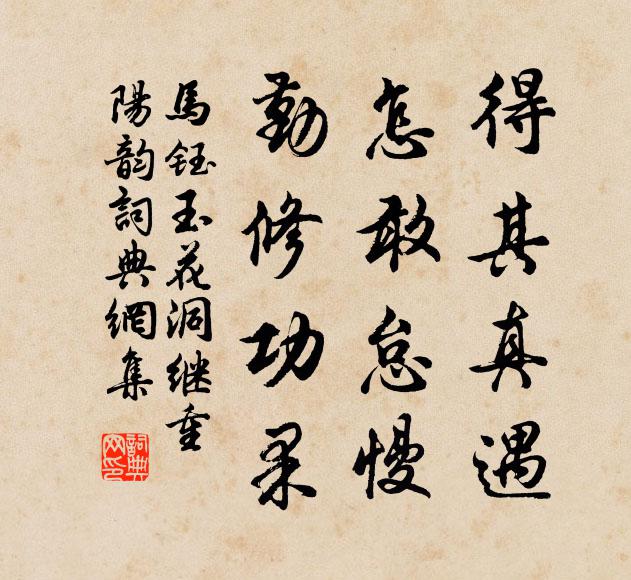 得其真遇
怎敢怠慢
勤修功果
馬鈺玉花洞继重
陽韵詞典網集
詞典网印